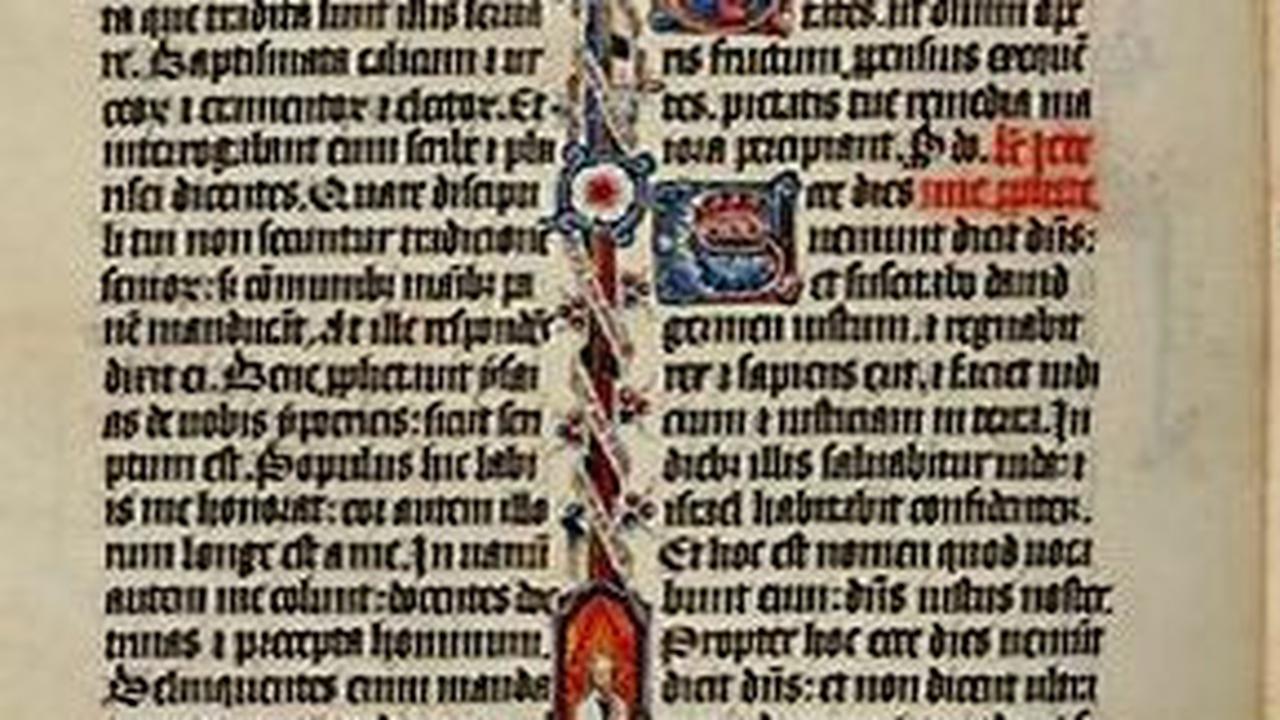 ta que tradita sunt illis serua
re. Baptismata calicum ⁊ ur
ceoꝝ ⁊ eramentoꝝ ⁊ lectoꝝ. Et
interrogabant eum scribe ⁊ pha
risei dicentes. Quare discipu
li tui non seruantur tradicione
senioꝝ: s; cōmunibꝫ manibꝫ pa
nē manducāt. At ille respondēs
dixit ei. Bene prophetauit ysai
as de nobis ypocritis: sicut scri
ptum est. Populus hic labi
is me honorat: cor autem illo
rum longe est a me. In uanū
autem me colunt: docentes doc
trinas ⁊ precepta hominum.
Relinquentes enim manda
operis
ris fructum, exequē
tes. pietatis tue remedia ma
iora percipiant. P dn̄.
cce dies
ueniunt dicit dn̄s:
et suscitabo dauid
germen iustum. ⁊ regnabit
rex ⁊ sapiens erit. ⁊ faciet iudi
cium ⁊ iusticiam in terra. In
diebꝫ illis saluabitur iuda: ⁊
israel habitabit confidenter.
Et hoc est nomen quod uoca
bunt eum: dn̄s iustus noster.
Propter hoc ecce dies ueniūt
dicit dn̄s: et non dicent ultra